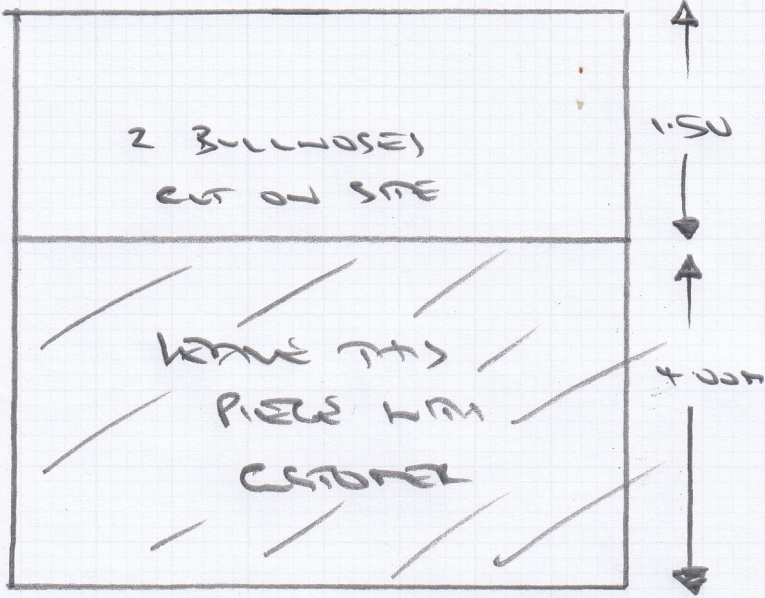 2 BULLNOSES
CUT ON SITE
1.50
LEAVE THIS
PIECE WITH
CUSTOMER
4.00M